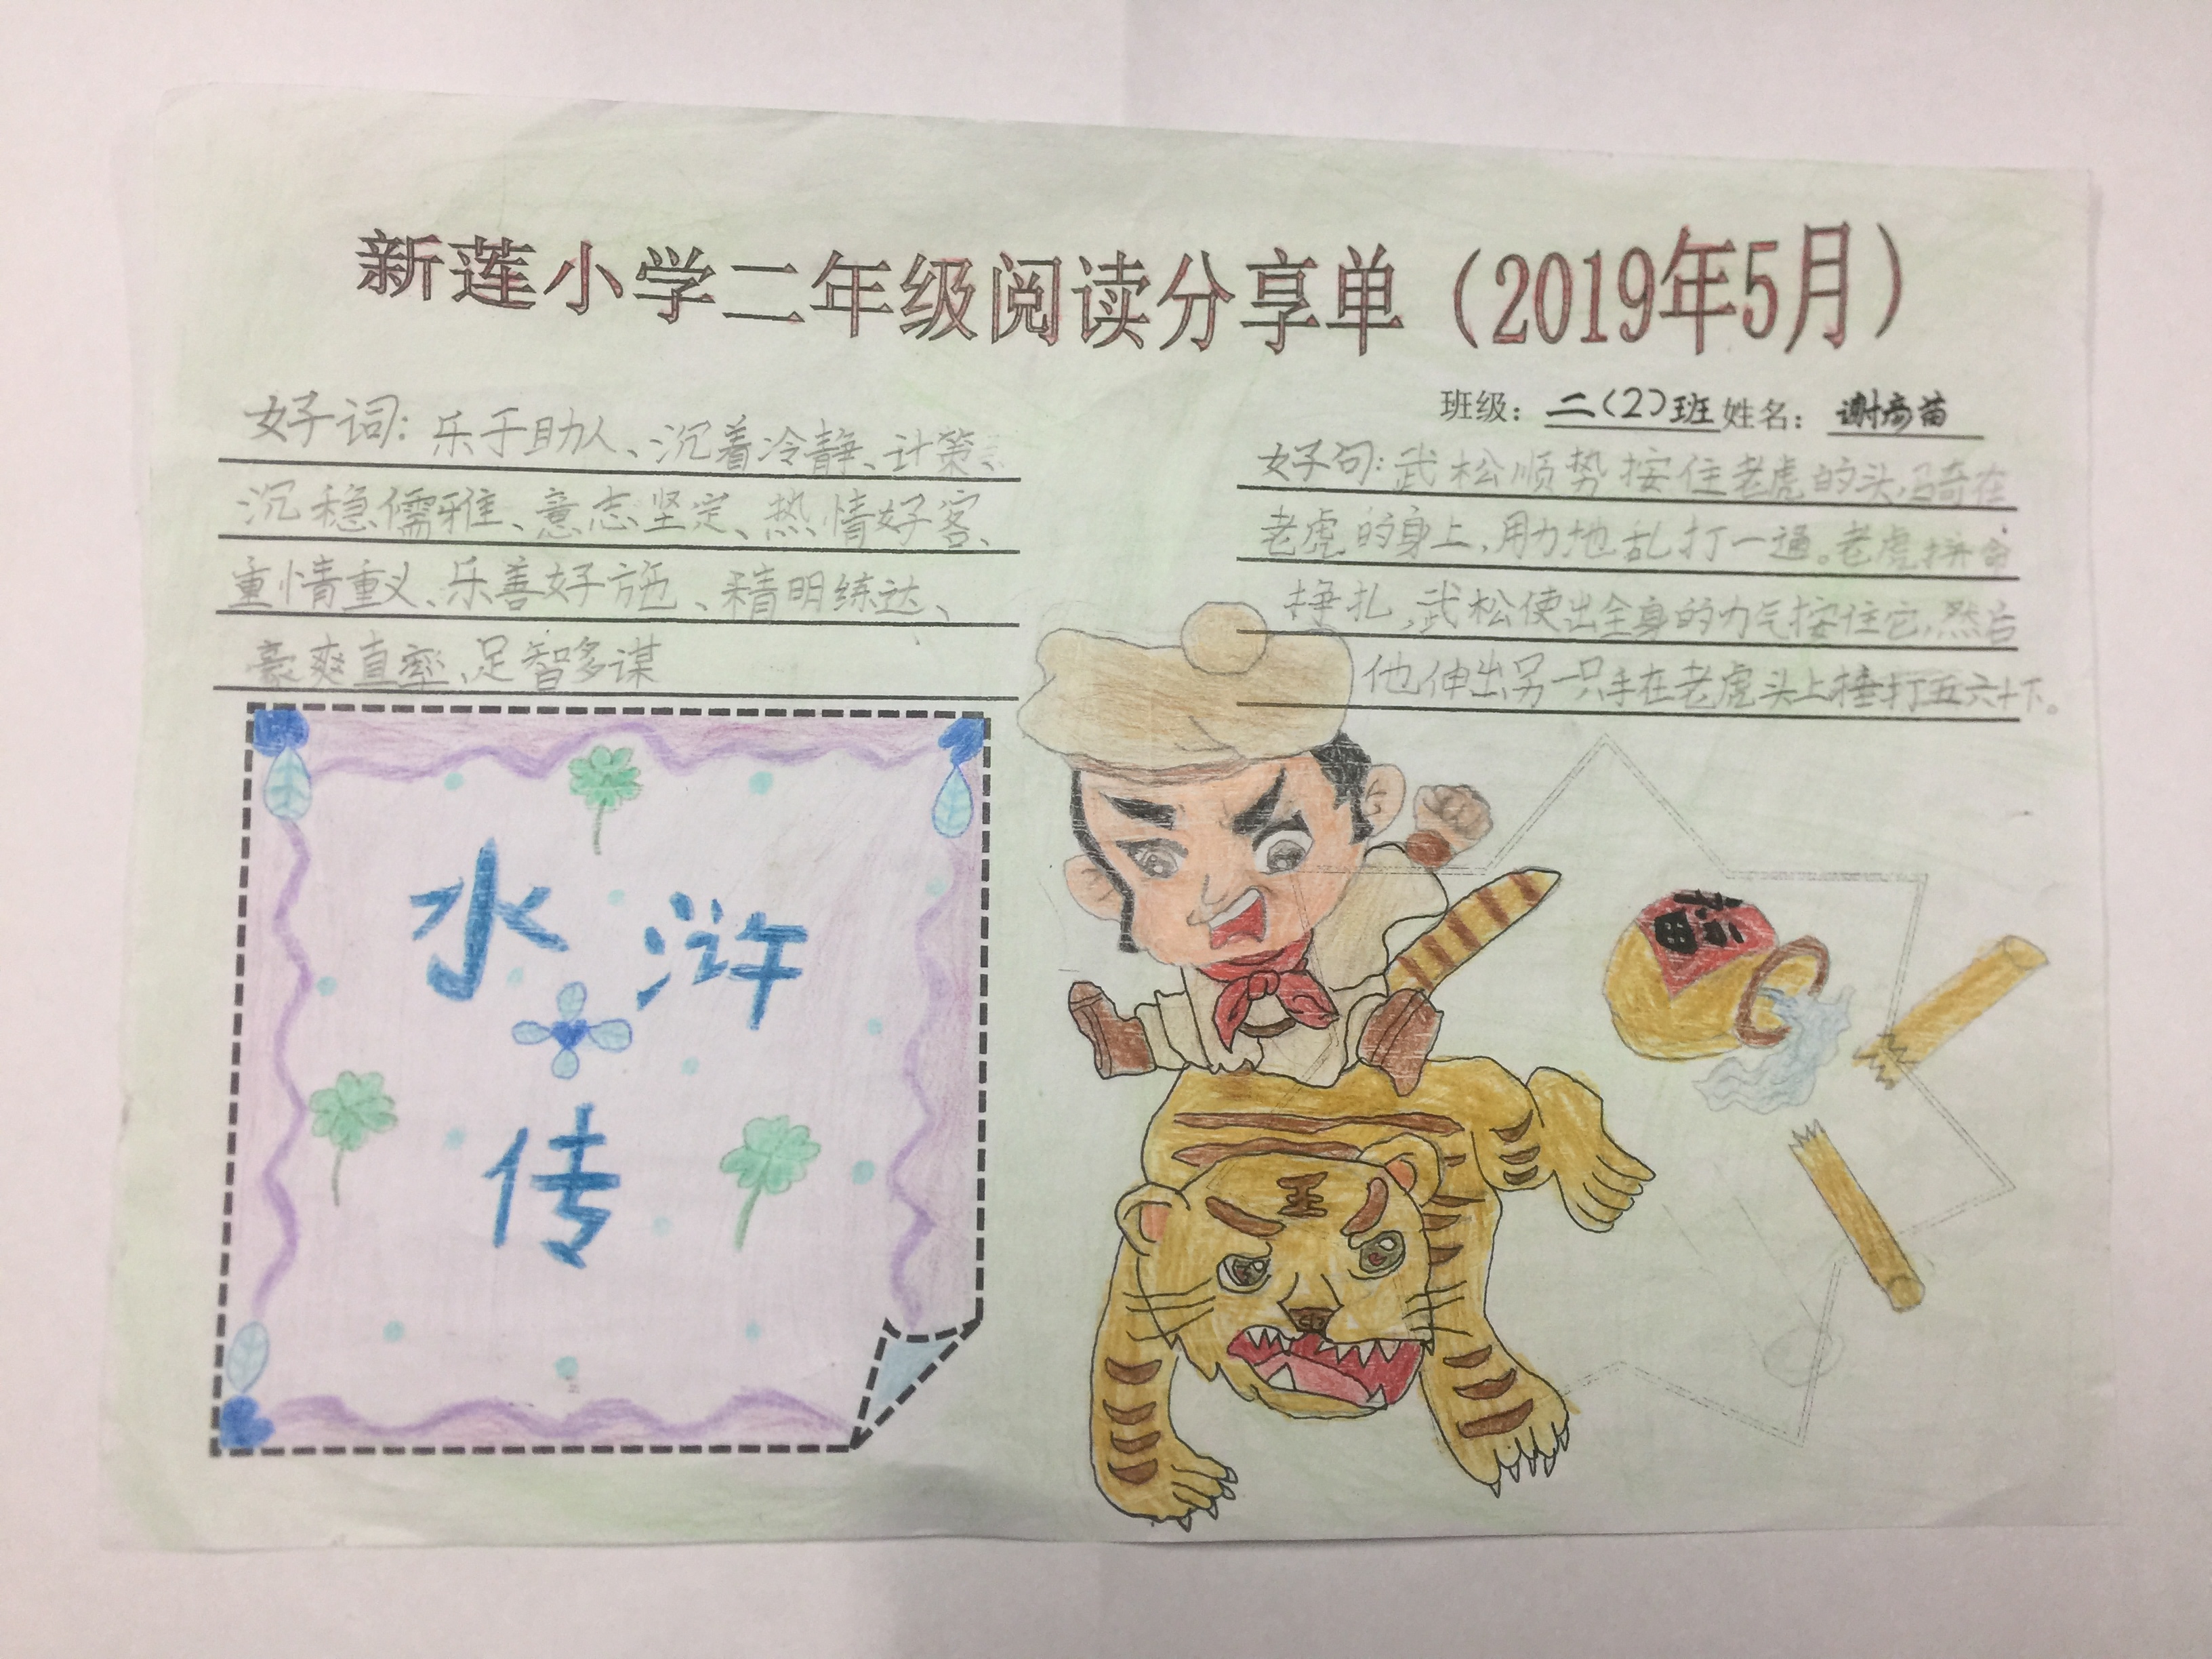 新莲小学二年级阅读分享单（2019年5月）
班级：二（2）班 姓名：谢彦苗
好词：乐于助人、沉着冷静、计策、
沉稳儒雅、意志坚定、热情好客、
重情重义、乐善好施、精明练达、
豪爽直率、足智多谋
好句：武松顺势按住老虎的头，骑在
老虎的身上，用力地乱打一通。老虎拼命
挣扎，武松使出全身的力气按住它，然后
他伸出另一只手在老虎头上捶打五六十下。
水浒
传
福
王